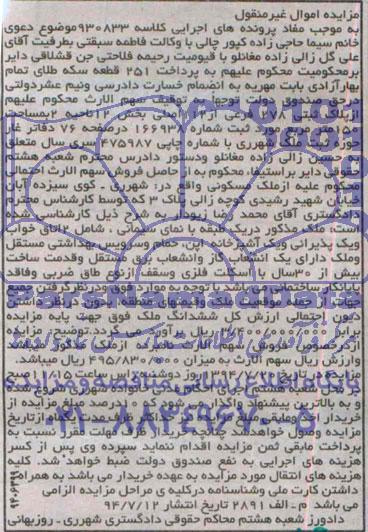 مزایده اموال غیرمنقول
به موجب مفاد پرونده های اجرایی کلاسه ۹۳۰۸۳۳موضوع دعوی
خانم سیما حاجی زاده کپور چالی با وکالت فاطمه سبقتی بطرفیت آقای
علی گل زالی زاده مغانلو با قیومیت رحیمه فلاحتی جن قشلاقی دایر
برمحکومیت محکوم علیهم به پرداخت ۲۵۱ قطعه سکه طلای تمام
بهارآزادی بابت مهریه به انضمام خسارت دادرسی ونیم عشردولتی
درحق صندوق دولت توقیف سهم الارث محکوم علیهم
ازپلاک ثبتی فرعی از اصلی بخش ۱۲ناحیه
۱۵۰متر مورد ثبت شماره ۱۶۶۹۳۲ درصفحه ۷۶ دفاتر
حوزه ثبت ملک شهرری با شماره چاپی ۴۷۵۹۸۷ سری سال متعلق
به حسین زالی زاده مغانلو ودستور دادرس محترم شعبه هشتم
حقوقی دایر براستیفاء محکوم به از حاصل فروش سهم الارث احتمالی
محکوم علیه ازملک مسکونی واقع در: شهرری - کوی سیزده آبان
خیابان شهید رشیدی کوچه زالی پلاک توسط کارشناس محترم
دادگستری آقای محمد رضا به شرح ذیل کارشناسی شده
است: ملک مذکور دریک طبقه با نمای سیمانی ، شامل ۲اتاق خواب
ویک پذیرائی ویک آشپزخانه اپن، حمام وسرویس بهداشتی مستقل
وملک دارای یک انشعاب گاز وانشعاب برق مستقل وقدمت ساخت
بیش از ۳۰سال با اسکلت فلزی وسقف ازنوع طاق ضربی وفاقد
پایانکار ساختمانی می باشد با توجه به موارد فوق ودرنظرگرفتن جمیع
جهات از جمله موقعیت ملک وقیمتهای منطقه بدون درنظر داشتن
دیون احتمالی ارزش کل ششدانگ ملک فوق جهت پایه مزایده
برابر ریال برآورد می گردد.توضیح: مزایده
درخصوص فروش سهم الارث ازملک مذکور میباشد
وارزش ریال سهم الارث به میزان ۴۹۵/۸۳۰/۰۰۰ ریال میباشد.
مزایده در تاریخ روز دوشنبه راس ساعت صبح
در محل شعبه هشتم خانواده شهرری شروع شده
و به بالاترین پیشنهاد واگذار می شود که ۱۰ درصد مبلغ مزایده از
خریدار اخذ ومابقی مبلغ حداکثر ظرف مدت یکماه ازتاریخ
مزایده وصول خواهدشد چنانچه خریدار ظرف مهلت مقرر نسبت به
پرداخت مابقی ثمن مزایده اقدام ننماید سپرده وی پس از کسر
هزینه های اجرایی به نفع صندوق دولت ضبط خواهد شد. کلیه
هزینه های انتقال مورد مزایده به عهده خریدار می باشد به همراه
داشتن کارت ملی وشناسنامه درکلیه ی مراحل مزایده الزامی
می باشد م - الف ۲۸۹۱ تاریخ انتشار ۹۴/۷/۱۲
دادورز شعبه هشتم محاکم حقوقی دادگستری شهرری - روزبهانی
پایگاه اطلاع رسانی مناقصه و مزایده
۰۲۱-۸۸۳۴۹۶۷۰-۵